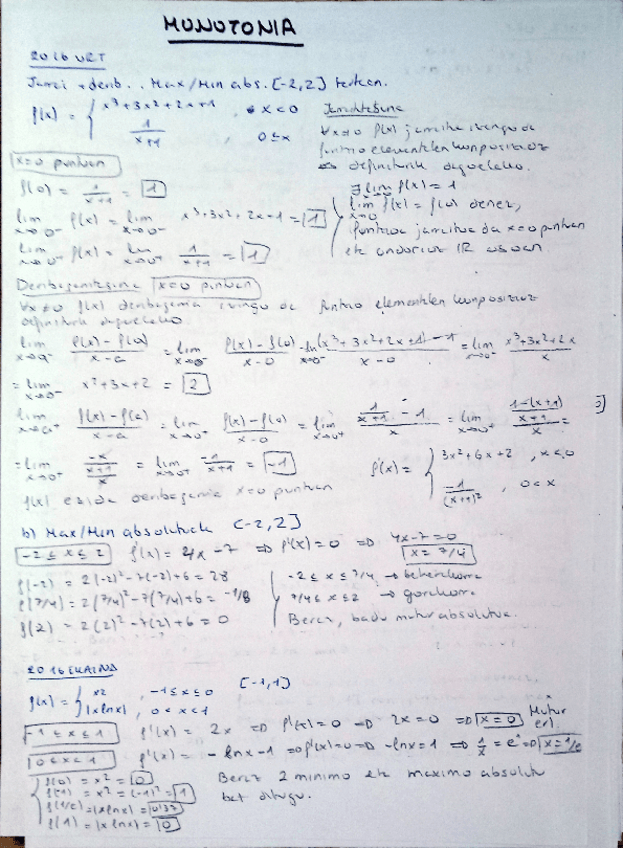 MONOTONIA
2016 URT
Jarrai + derib. . Max/Min abs. [-2,2] tartean.
f(x) = { x³+3x²+2x+1 , x<0
1/(x+1) , 0≤x
Jarraitutasuna
∀x≠0 f(x) jarraitua izango da
funtzio elementalen konposizioz
definiturik dagoelako.
x=0 puntuan
f(0) = 1/(x+1) = 1
lim x→0⁻ f(x) = lim x→0⁻ x³+3x²+2x+1 = 1
lim x→0⁺ f(x) = lim x→0⁺ 1/(x+1) = 1
∃ lim x→0 f(x) = 1
lim x→0 f(x) = f(0) denez,
funtzioa jarraitua da x=0 puntuan
eta ondorioz IR osoan.
Deribagarritasuna x=0 puntuan
∀x≠0 f(x) deribagarria izango da funtzio elementalen konposizioz
definiturik dagoelako
lim x→a⁻ (f(x) - f(a))/(x-a) = lim x→0⁻ (f(x) - f(0))/(x-0) = lim x→0⁻ ((x³+3x²+2x+1) - 1)/(x-0) = lim x→0⁻ (x³+3x²+2x)/x
= lim x→0⁻ x²+3x+2 = 2
lim x→a⁺ (f(x) - f(a))/(x-a) = lim x→0⁺ (f(x) - f(0))/(x-0) = lim x→0⁺ (1/(x+1) - 1)/x = lim x→0⁺ ((1-(x+1))/(x+1))/x =
= lim x→0⁺ (-x/(x+1))/x = lim x→0⁺ -1/(x+1) = -1
f'(x) = { 3x²+6x+2 , x<0
-1/(x+1)² , 0<x
f(x) ez da deribagarria x=0 puntuan
b) Max/Min absolutuak [-2,2]
-2≤x≤2 f'(x) = 4x-7 ⇒ f'(x)=0 ⇒ 4x-7=0
x=7/4
f(-2) = 2(-2)²-7(-2)+6 = 28
f(7/4) = 2(7/4)²-7(7/4)+6 = -1/8
f(2) = 2(2)²-7(2)+6 = 0
-2≤x≤7/4 → beherakorra
7/4≤x≤2 → gorakorra
Beraz, badu mutur absolutua.
2016 EKAINA
f(x) = { x² , -1≤x≤0
|x lnx| , 0<x<1
[-1,1]
-1≤x≤1 f'(x) = 2x ⇒ f'(x)=0 ⇒ 2x=0 ⇒ x=0 Mutur erl.
0≤x<1 f'(x) = -lnx-1 ⇒ f'(x)=0 ⇒ -lnx=1 ⇒ 1/x=e¹ ⇒ x=1/e
f(0) = x² = 0
f(-1) = x² = (-1)² = 1
f(1/e) = |x lnx| = 0'37
f(1) = |x lnx| = 0
Beraz 2 minimo eta maximo absolutu
bat ditugu.